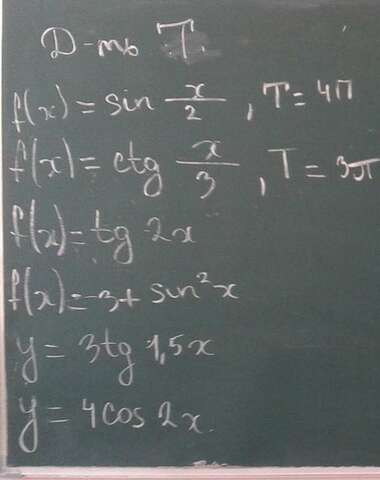 Д-ть T.
f(x) = sin x/2, T = 4π
f(x) = ctg x/3, T = 3π
f(x) = tg 2x
f(x) = -3 + sin²x
y = 3tg 1,5x
y = 4cos 2x.